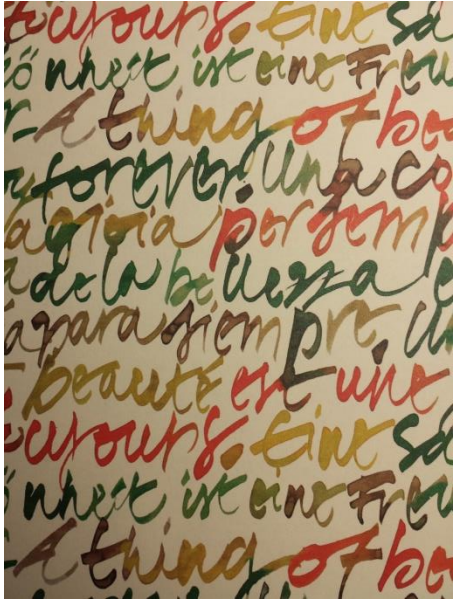 toujours. Eine Sc
önheit ist eine Freu
- A thing of bea
y forever. Una co
a gioia per semp
a de la belleza e
a para siempre. Un
beauté est une
toujours. Eine Sc
önheit ist eine Freu
- A thing of bea